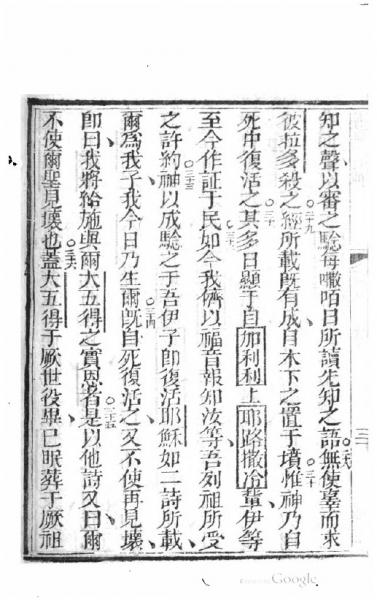 知之聲以審之驗每嗽咟日所讀先知之語無二十八使辜而求
彼拉多殺之二十九經所載既有成自木下之置于墳三十惟神乃自
死中復活之三十一其多日顯于自加利利上耶路撒冷輩伊等
至今作証于民三十二如今我儕以福音報知汝等吾列祖所受
之許約三十三神以成驗之于吾伊子即復活耶穌如二詩所載
爾為我子我今日乃生爾三十四既自死復活之又不使再見壞
即曰我將給施與爾大五得之實恩者三十五是以他詩又曰爾
不使爾聖見壞也三十六蓋大五得于厥世役畢已眠葬于厥祖
Google